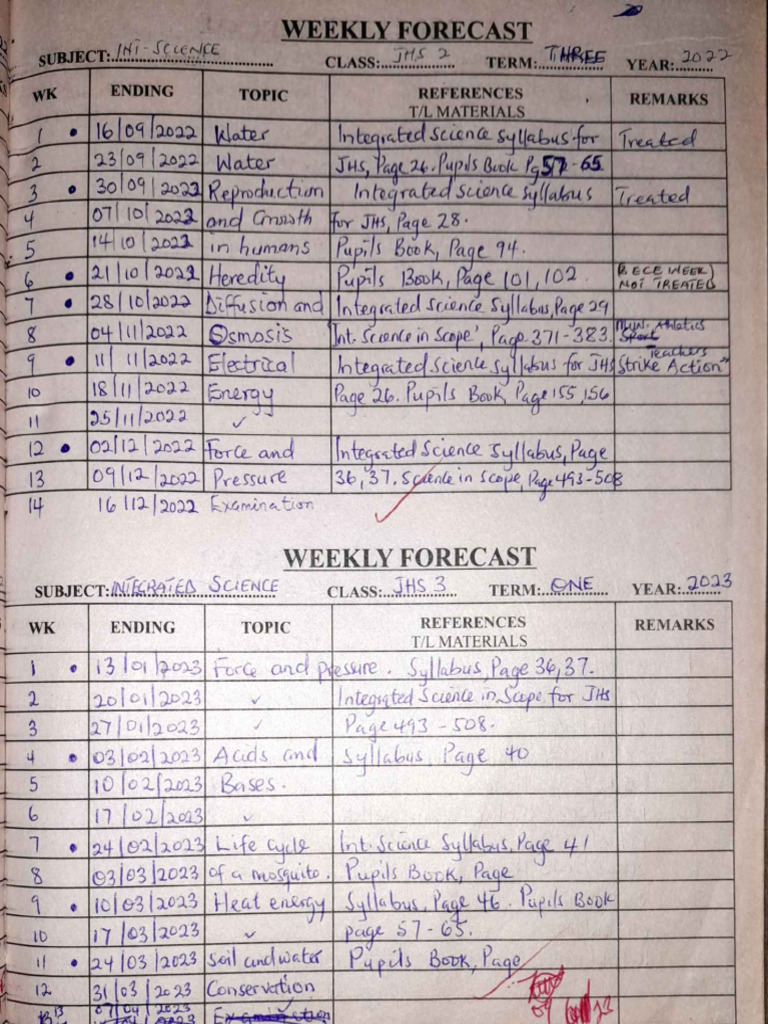 WEEKLY FORECAST
SUBJECT: INT-SCIENCE CLASS: JHS 2 TERM: THREE YEAR: 2022
WK ENDING TOPIC REFERENCES T/L MATERIALS REMARKS
1 • 16/09/2022 Water Integrated Science Syllabus for Treated
2 23/09/2022 Water JHS, Page 24. Pupils Book Pg 57-65
3 • 30/09/2022 Reproduction Integrated science syllabus Treated
4 07/10/2022 and Growth for JHS, Page 28.
5 14/10/2022 in humans Pupils Book, Page 94.
6 • 21/10/2022 Heredity Pupils Book, Page 101, 102. B.ECE WEEK) NOT TREATED
7 • 28/10/2022 Diffusion and Integrated Science Syllabus, Page 29
8 04/11/2022 Osmosis 'Int. Science in Scope', Page 371-383. Athletics
9 • 11/11/2022 Electrical Integrated Science Syllabus for JHS Teachers Strike Action"
10 18/11/2022 Energy Page 26. Pupils Book, Page 155, 156
11 25/11/2022 ✓
12 • 02/12/2022 Force and Integrated Science Syllabus, Page
13 09/12/2022 Pressure 36, 37. Science in Scope, Page 493-508
14 16/12/2022 Examination
WEEKLY FORECAST
SUBJECT: INTEGRATED SCIENCE CLASS: JHS 3 TERM: ONE YEAR: 2023
WK ENDING TOPIC REFERENCES T/L MATERIALS REMARKS
1 • 13/01/2023 Force and pressure. Syllabus, Page 36, 37.
2 20/01/2023 ✓ Integrated Science in Scope for JHS
3 27/01/2023 ✓ Page 493-508.
4 • 03/02/2023 Acids and Syllabus, Page 40
5 10/02/2023 Bases.
6 17/02/2023 ✓
7 • 24/02/2023 Life cycle Int. Science Syllabus, Page 41
8 03/03/2023 of a mosquito. Pupils Book, Page
9 • 10/03/2023 Heat energy Syllabus, Page 46. Pupils Book
10 17/03/2023 ✓ page 57-65.
11 • 24/03/2023 Soil and water Pupils Book, Page
12 31/03/2023 Conservation
13 07/04/2023 ✓
Examination